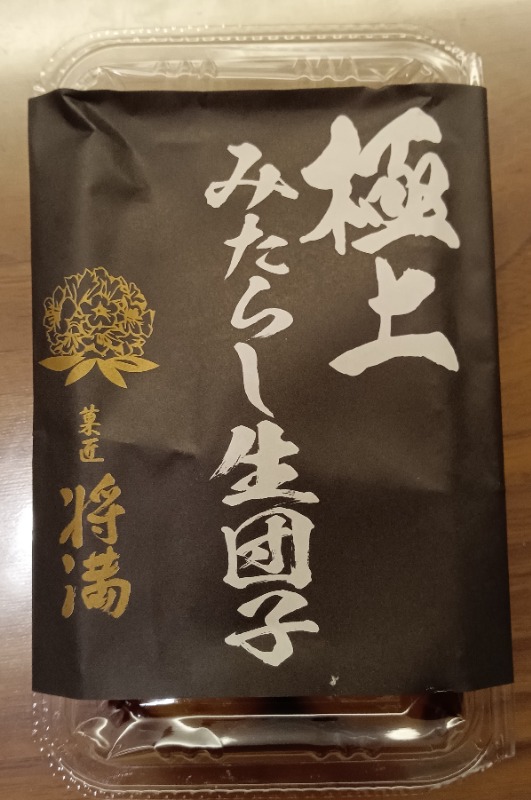 極上
みたらし生団子
菓匠
将満